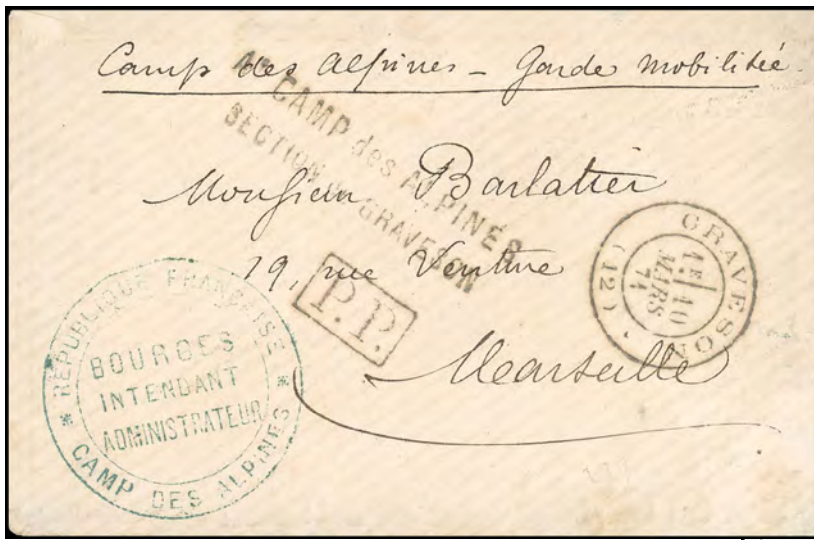 Camp des Alpines - Garde mobilisée
CAMP des ALPINES
SECTION de GRAVESON
Monsieur Barlatier
19, rue Venture
Marseille
P.P.
GRAVESON
1E/10
MARS
71
(12)
RÉPUBLIQUE FRANÇAISE
BOURGES
INTENDANT
ADMINISTRATEUR
CAMP DES ALPINES